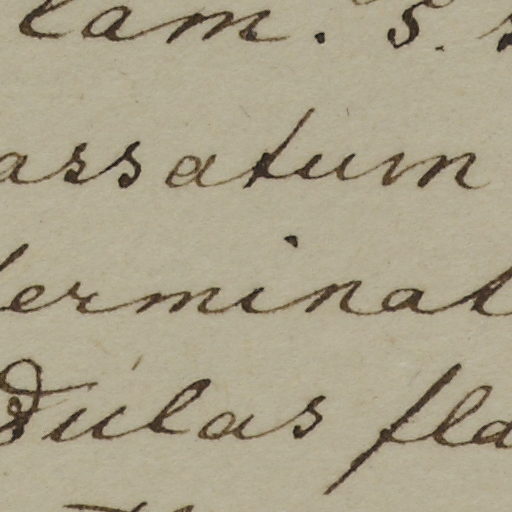 lam. 5.
assatum
terminat
dulas fla